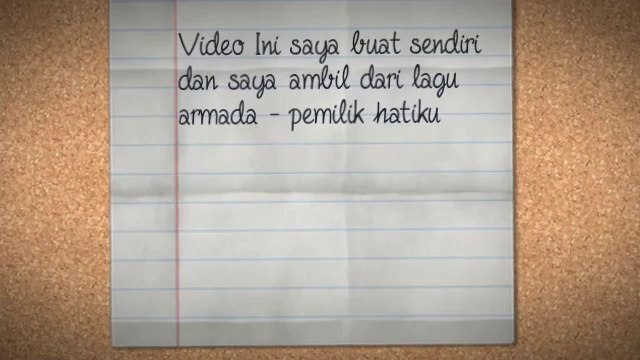 Video Ini saya buat sendiri
dan saya ambil dari lagu
armada - pemilik hatiku